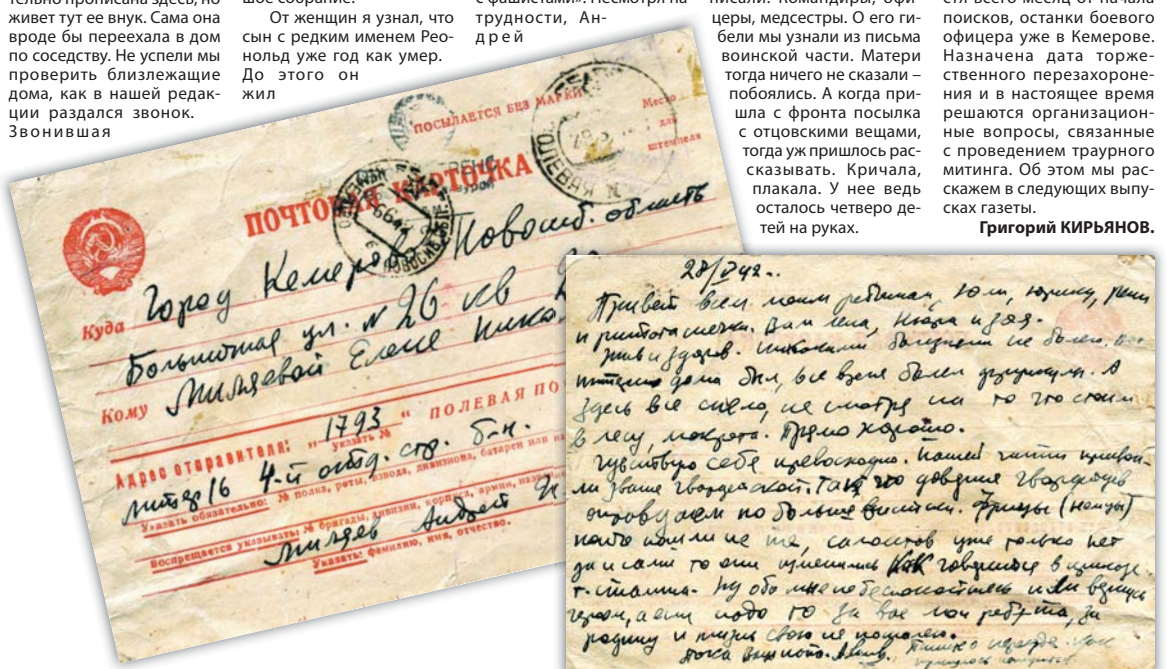 живет тут ее внук. Сама она
вроде бы переехала в дом
по соседству. Не успели мы
проверить близлежащие
дома, как в нашей редак-
ции раздался звонок.
Звонившая
шое собрание.
От женщин я узнал, что
сын с редким именем Рео-
нольд уже год как умер.
До этого он
жил
с фашистами». Несмотря на
трудности, Ан-
дрей
писали. Командиры, офи-
церы, медсестры. О его ги-
бели мы узнали из письма
воинской части. Матери
тогда ничего не сказали –
побоялись. А когда при-
шла с фронта посылка
с отцовскими вещами,
тогда уж пришлось рас-
сказывать. Кричала,
плакала. У нее ведь
осталось четверо де-
тей на руках.
поисков, останки боевого
офицера уже в Кемерове.
Назначена дата торже-
ственного перезахороне-
ния и в настоящее время
решаются организацион-
ные вопросы, связанные
с проведением траурного
митинга. Об этом мы рас-
скажем в следующих выпу-
сках газеты.
Григорий КИРЬЯНОВ.
ПОСЫЛАЕТСЯ БЕЗ МАРКИ
Место
для
штемпеля
ПОЧТОВАЯ КАРТОЧКА
Куда Город Кемерово Новосиб. область
Больничная ул. № 26 кв
Кому Миляевой Елене Нико
Адрес отправителя: „1793“ ПОЛЕВАЯ ПО
указать №
литер 16 4-й отд. стр. б-н.
Указать обязательно: № полка, роты, взвода, дивизиона, батареи или
Воспрещается указывать: № бригады, дивизии, корпуса, армии,
Миляев Андрей
Указать: фамилию, имя, отчество.
28/V 42 г.
Привет всем моим ребятам, Юли, Юрику, Рени
и Вам Лена, Нюра и Зоя.
Жив и здоров. Никакими болезнями не болею.
дома был, все время болел А
здесь все смело, не смотря на то что стоим
в лесу, мокрота. Прямо хорошо.
Чувствую себя превосходно. Нашей части присвои-
ли звание гвардейской. Так что доверие гвардейцев
оправдаем по больше Фрицы (немцы)
пошли не те, самолетов уже только нет
да и сами то они изменились как говорилось в приказе
т. Сталина. Ну обо мне не беспокойтесь или вернусь
героем, а если надо то за вас мои ребята, за
родину и жизнь свою не пожалею.
Пока